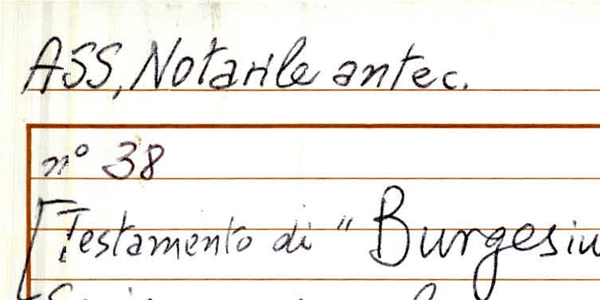 ASS, Notarile antec.
n° 38
[Testamento di "Burgesiu